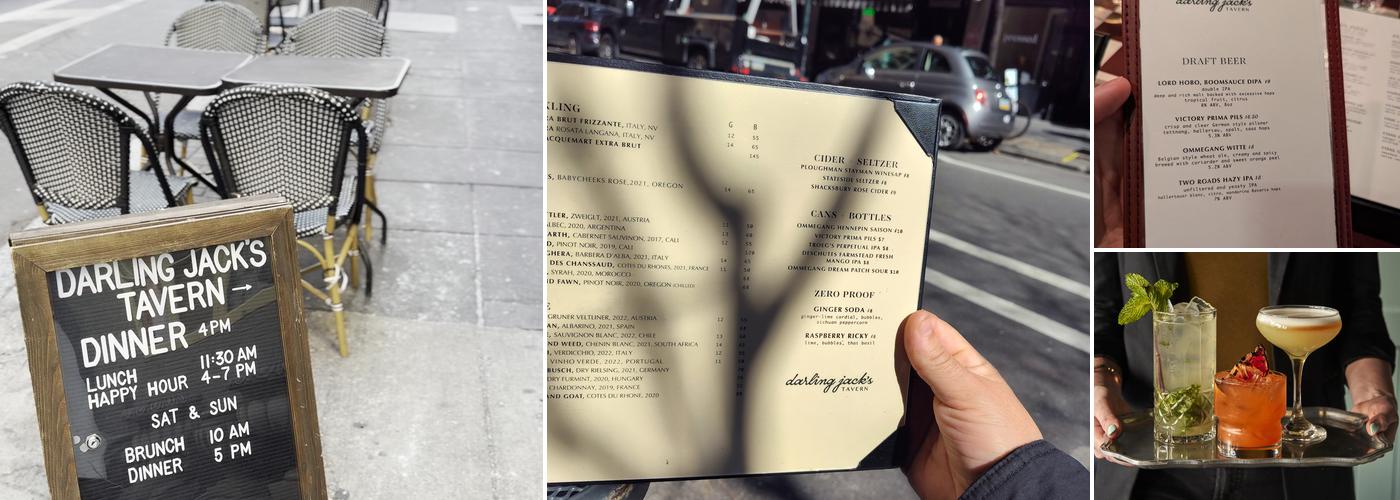 DARLING JACK'S
TAVERN →
DINNER 4 PM
LUNCH 11:30 AM
HAPPY HOUR 4-7 PM
SAT & SUN
BRUNCH 10 AM
DINNER 5 PM
KLING
G B
BRUT FRIZZANTE, ITALY, NV 12 55
ROSATA LANGANA, ITALY, NV 14 65
ACQUEMART EXTRA BRUT 145
BABYCHEEKS ROSE, 2021, OREGON 14 65
TLER, ZWEIGLT, 2021, AUSTRIA 11 50
LBEC, 2020, ARGENTINA
ARTH, CABERNET SAUVIGNON, 2017, CALI
PINOT NOIR, 2019, CALI
GHERA, BARBERA D'ALBA, 2021, ITALY
DES CHANSSAUD, COTES DU RHONES, 2021, FRANCE
SYRAH, 2020, MOROCCO
ND FAWN, PINOT NOIR, 2020, OREGON (CHILLED)
GRUNER VELTLINER, 2022, AUSTRIA
AN, ALBARINO, 2021, SPAIN
SAUVIGNON BLANC, 2022, CHILE
ND WEED, CHENIN BLANC, 2021, SOUTH AFRICA
VERDICCHIO, 2022, ITALY
VINHO VERDE, 2022, PORTUGAL
BUSCH, DRY RIESLING, 2021, GERMANY
DRY FURMINT, 2020, HUNGARY
CHARDONNAY, 2019, FRANCE
AND GOAT, COTES DU RHONE, 2020
CIDER SELTZER
PLOUGHMAN STAYMAN WINESAP
STATESIDE SELTZER
SHACKSBURY ROSE CIDER
CANS BOTTLES
OMMEGANG HENNEPIN SAISON $10
VICTORY PRIMA PILS $7
TROEG'S PERPETUAL IPA $8
DESCHUTES FARMSTEAD FRESH
MANGO IPA $8
OMMEGANG DREAM PATCH SOUR $10
ZERO PROOF
GINGER SODA
ginger-lime cordial, bubbles,
sichuan peppercorn
RASPBERRY RICKY
lime, bubbles, thai basil
darling jack's
TAVERN
darling jack's
TAVERN
DRAFT BEER
LORD HOBO, BOOMSAUCE DIPA
double IPA
deep and rich malt backed with excessive hops
tropical fruit, citrus
8% ABV, 8oz
VICTORY PRIMA PILS
crisp and clear German style pilsner
tettnang, hallertau, spalt, saaz hops
5.3% ABV
OMMEGANG WITTE
Belgian style wheat ale, creamy and spicy
brewed with coriander and sweet orange peel
5.2% ABV
TWO ROADS HAZY IPA
unfiltered and yeasty IPA
hallertauer blanc, citra, mandarina Bavaria hops
7% ABV